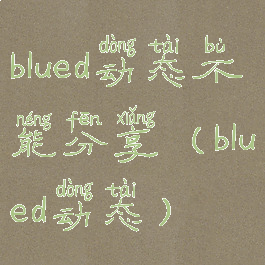 dòng tài bù
blued动态不
néng fēn xiǎng
能分享（blu
dòng tài
ed动态）